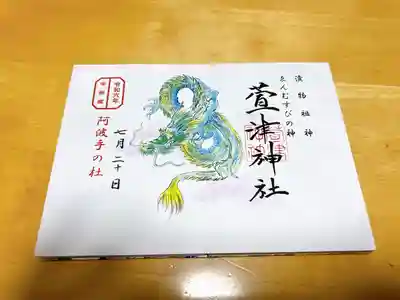 漬物祖神
ゑんむすびの神
萱津神社
七月二十日
令和六年
阿波手の杜